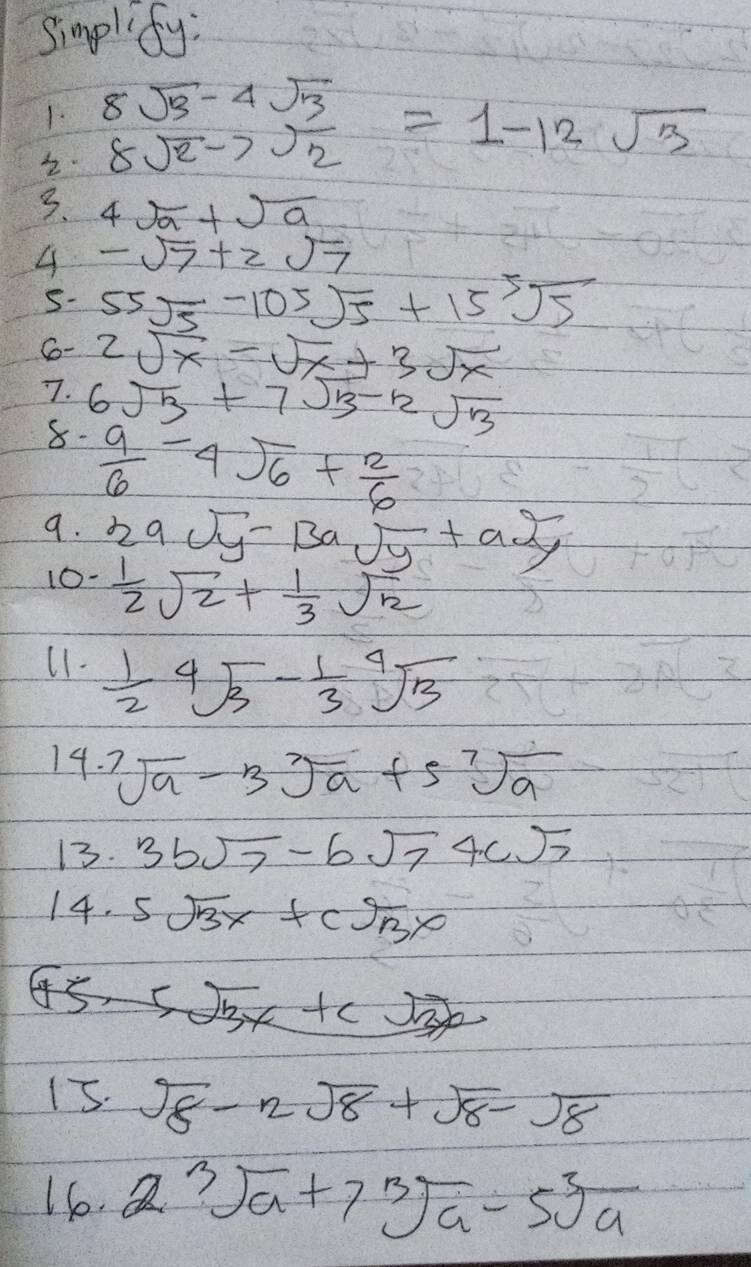 Simplify:
1. 8√3 - 4√3 = 1-12√3
2. 8√2 - 7√2
3. 4√a + √a
4 -√7 + 2√7
5- 5⁵√5 - 10⁵√5 + 15⁵√5
6- 2√x - √x + 3√x
7. 6√3 + 7√3 - 2√3
8- 9/6 - 4√6 + 2/6
9. 2a√y - 3a√y + a√y
10- 1/2√2 + 1/3√2
11. 1/2 ⁴√3 - 1/3 ⁴√3
14. ⁷√a - 3⁷√a + 5⁷√a
13. 3b√7 - 6√7 4c√7
14. 5√3x + c√3x
15. 5√3x + c√3x
15. √8 - 2√8 + √8 - √8
16. 2³√a + 7³√a - 5³√a